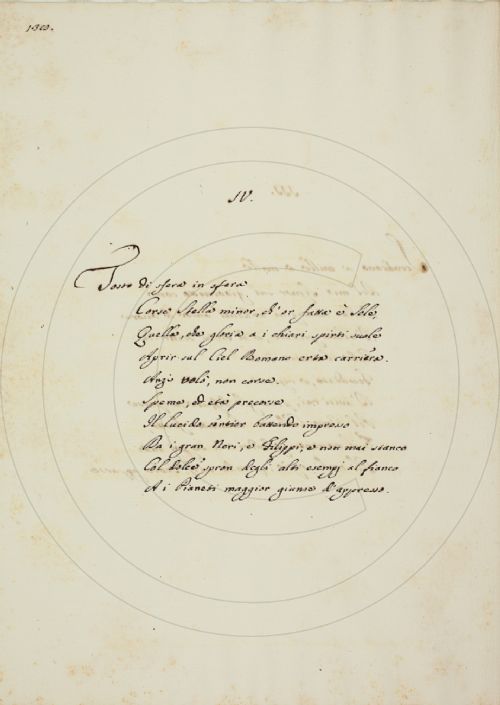 IV.
Tosto di sfera in sfera
Corse Stella minor, ch'or fatta è Sole,
Quella, che gloria a i chiari spirti suole
Aprir sul Ciel Romano erta carriera.
Anzi volò, non corse
Speme, ed età precorse
Il lucido sentier battendo impresso
Da i gran Neri, e Filippi, e non mai stanco
Col dolce spron degli alti esempj al fianco
A i Pianeti maggior giunse d'appresso.